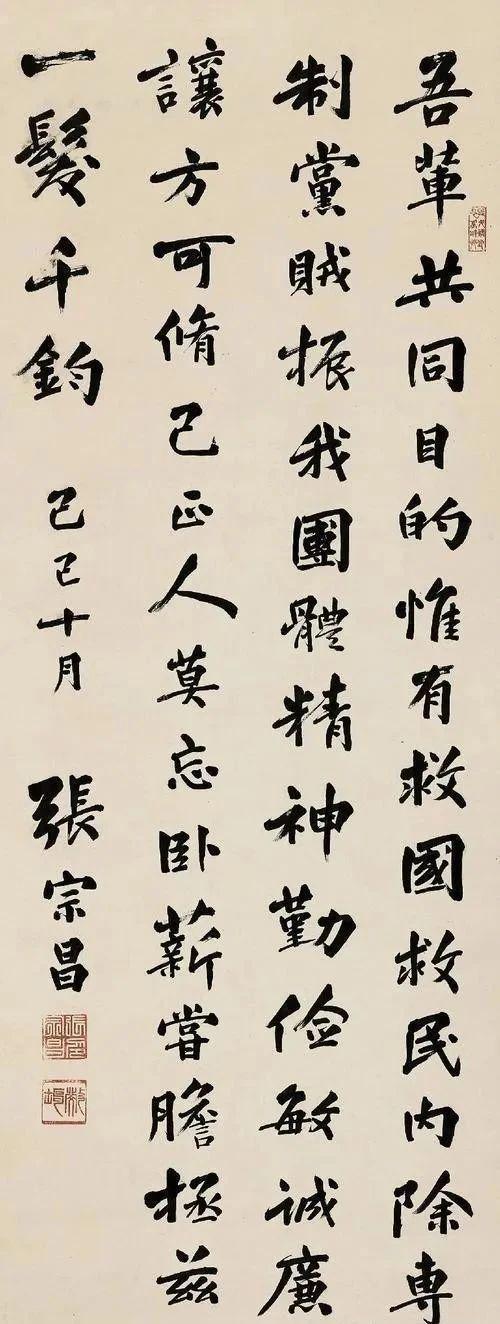 吾輩共同目的惟有救國救民內除專
制黨賊振我團體精神勤儉敏誠廉
讓方可脩己正人莫忘卧薪嘗膽拯茲
一髮千鈞 己巳十月 張宗昌